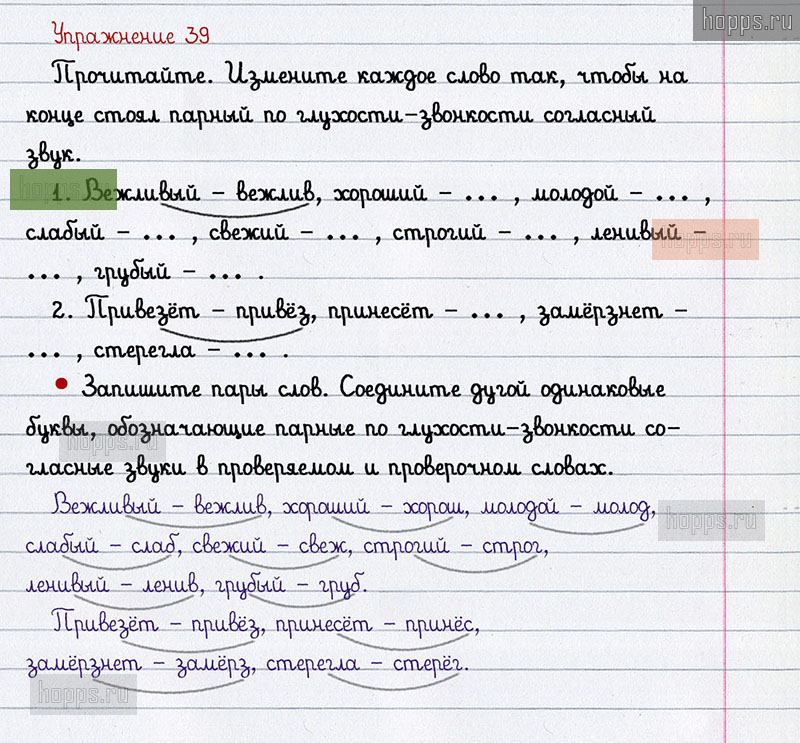 hopps.ru
Упражнение 39
Прочитайте. Измените каждое слово так, чтобы на
конце стоял парный по глухости-звонкости согласный
звук.
1. Вежливый – вежлив, хороший – ... , молодой – ... ,
слабый – ... , свежий – ... , строгий – ... , ленивый –
... , грубый – ... .
2. Привезёт – привёз, принесёт – ... , замёрзнет –
... , стерегла – ... .
• Запишите пары слов. Соедините дугой одинаковые
буквы, обозначающие парные по глухости-звонкости со-
гласные звуки в проверяемом и проверочном словах.
Вежливый – вежлив, хороший – хорош, молодой – молод,
слабый – слаб, свежий – свеж, строгий – строг,
ленивый – ленив, грубый – груб.
Привезёт – привёз, принесёт – принёс,
замёрзнет – замёрз, стерегла – стерёг.
hopps.ru
hopps.ru
hopps.ru
hopps.ru
hopps.ru